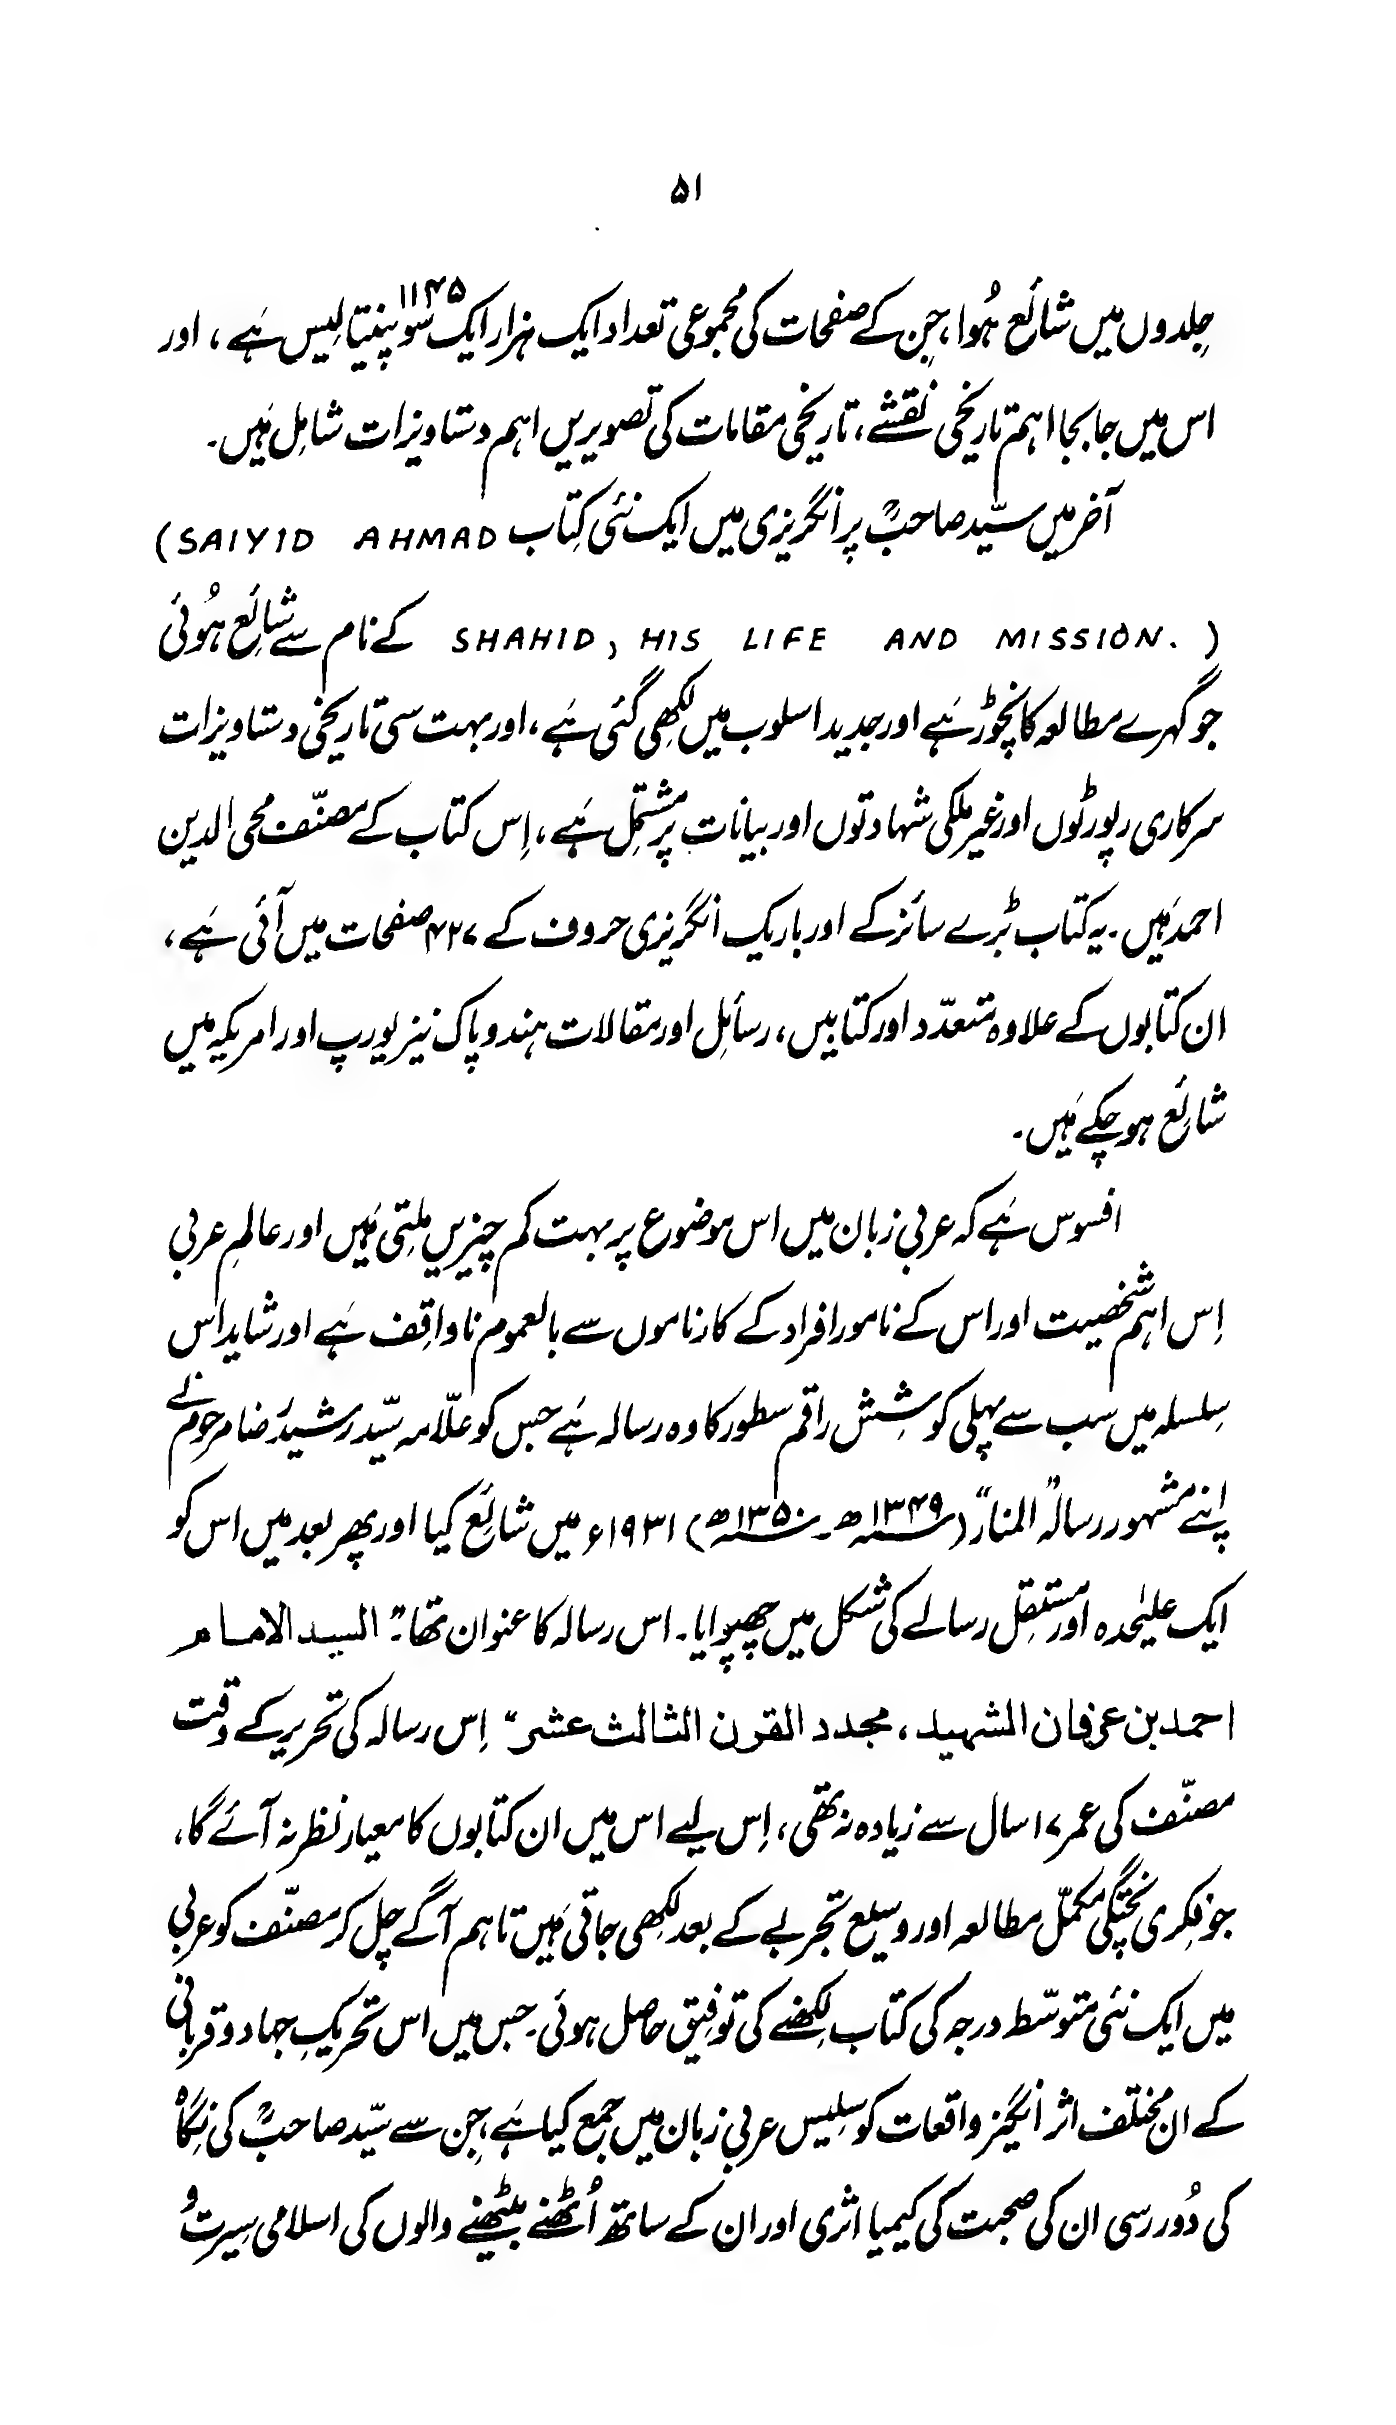 ۵۱
جِلدوں میں شائع ہُوا، جِن کے صفحات کی مجموعی تعداد ایک ہزار ایک سو پینتالیس ۱۱۴۵ ہَے، اور
اس میں جا بجا اہم تاریخی نقشے، تاریخی مقامات کی تصویریں اہم دستاویزات شامِل ہَیں۔
آخر میں سیّد صاحبؒ پر انگریزی میں ایک نئی کِتاب (SAIYID AHMAD
SHAHID, HIS LIFE AND MISSION.) کے نام سے شائع ہُوئی
جو گہرے مطالعہ کا نچوڑ ہَے اور جدید اسلوب میں لکھی گئی ہَے، اور بہت سی تاریخی دستاویزات
سرکاری رپورٹوں اور غیر ملکی شہادتوں اور بیانات پر مشتمل ہَے، اِس کتاب کے مصنّف محی الدین
احمد ہَیں۔ یہ کتاب بڑے سائز کے اور باریک انگریزی حروف کے ۴۲۷ صفحات میں آئی ہَے،
ان کتابوں کے علاوہ متعدّد اور کتابیں، رسائل اور مقالات ہند و پاک نیز یورپ اور امریکہ میں
شائع ہو چکے ہَیں۔
افسوس ہَے کہ عربی زبان میں اس موضوع پر بہت کم چیزیں ملتی ہَیں اور عالمِ عربی
اِس اہم شخصیت اور اس کے نامور افراد کے کارناموں سے بالعموم ناواقِف ہَے اور شاید اس
سلسلہ میں سب سے پہلی کوشِش راقم سطور کا وہ رسالہ ہَے جس کو علّامہ سیّد رشید رضا مرحوم نے
اپنے مشہور رسالہ "المنار" (۱۳۴۹ھ۔ ۱۳۵۰ھ) ۱۹۳۱ء میں شائع کیا اور پھر بعد میں اس کو
ایک علیٰحدہ اور مستقِل رسالے کی شکل میں چھپوایا۔ اس رسالہ کا عنوان تھا۔ "السید الامام
احمد بن عرفان الشہید، مجدد القرن الثالث عشر" اِس رسالہ کی تحریر کے وقت
مصنّف کی عمر ۱۷ سال سے زیادہ نہ تھی، اِس لیے اس میں ان کتابوں کا معیار نظر نہ آئے گا،
جو فِکری پختگی مکمّل مطالعہ اور وسیع تجربے کے بعد لکھی جاتی ہَیں تاہم آگے چل کر مصنّف کو عربی
میں ایک نئی متوسّط درجہ کی کتاب لِکھنے کی توفیق حاصل ہوئی۔ جس میں اس تحریکِ جہاد و قربانی
کے ان مختلف اثر انگیز واقعات کو سلیس عربی زبان میں جمع کیا ہَے، جِن سے سیّد صاحبؒ کی نِگاہ
کی دُور رسی ان کی صحبت کی کیمیا اثری اور ان کے ساتھ اُٹھنے بیٹھنے والوں کی اسلامی سیرت و